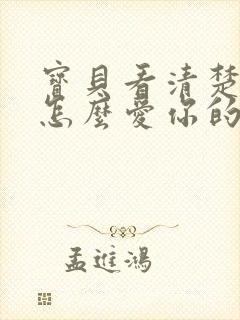 寶貝看清楚
怎麼愛你的
孟進鴻